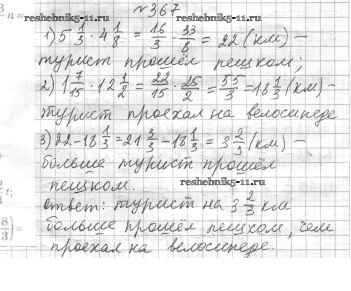 №367
www.reshak5-11.ru
1) 5 1/3 · 4 1/8 = 16/3 · 33/8 = 22 (км) –
турист прошёл пешком;
2) 1 7/15 · 12 1/2 = 22/15 · 25/2 = 55/3 = 18 1/3 (км) –
турист проехал на велосипеде
3) 22 – 18 1/3 = 21 3/3 – 18 1/3 = 3 2/3 (км) –
больше турист прошёл
пешком.
ответ: турист на 3 2/3 км
больше прошёл пешком, чем
проехал на велосипеде.